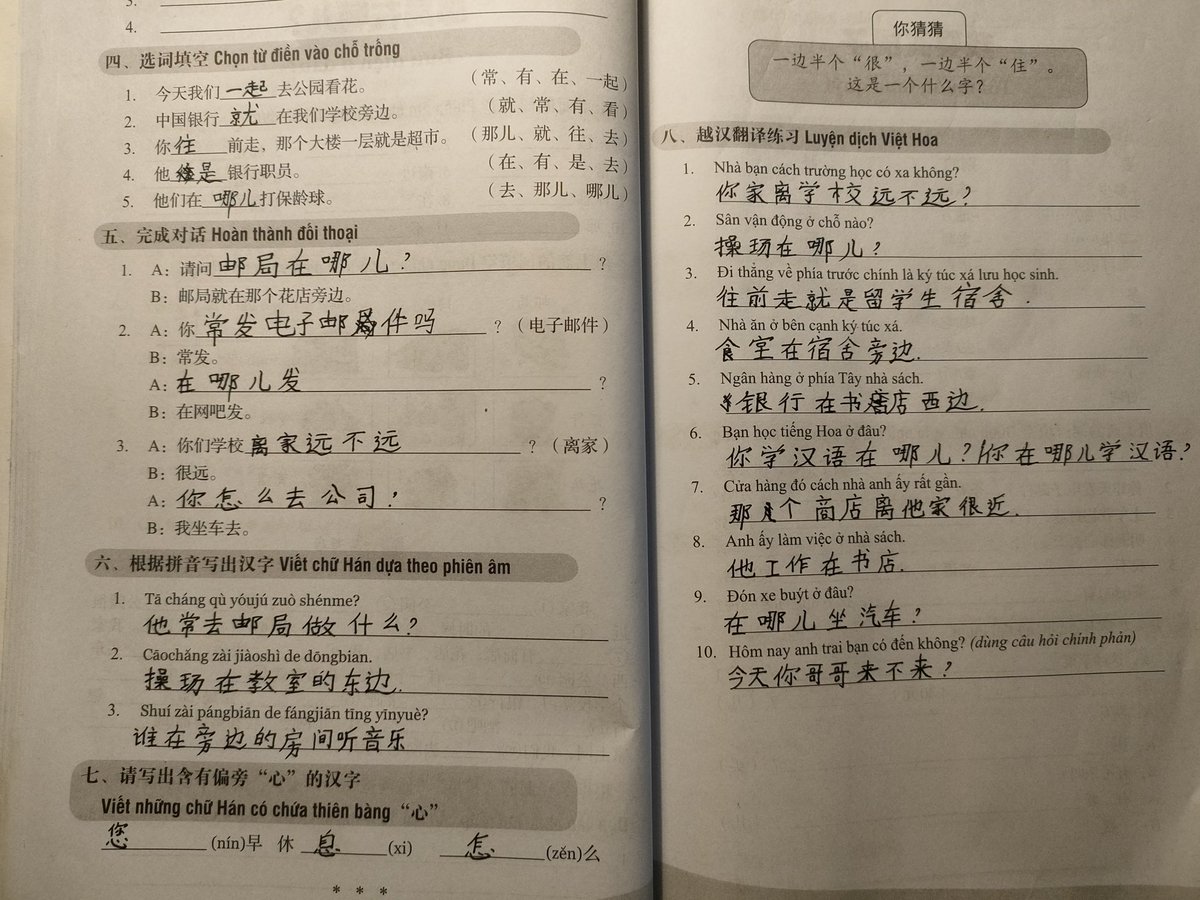 3.
4.
四、选词填空 Chọn từ điền vào chỗ trống
1. 今天我们 一起 去公园看花。 (常、有、在、一起)
2. 中国银行 就 在我们学校旁边。 (就、常、有、看)
3. 你 往 前走，那个大楼一层就是超市。 (那儿、就、往、去)
4. 他 是 银行职员。 (在、有、是、去)
5. 他们在 哪儿 打保龄球。 (去、那儿、哪儿)
五、完成对话 Hoàn thành đối thoại
1. A：请问 邮局在哪儿? ？
B：邮局就在那个花店旁边。
2. A：你 常发电子邮件吗 ？（电子邮件）
B：常发。
A：在哪儿发 ？
B：在网吧发。
3. A：你们学校 离家远不远 ？（离家）
B：很远。
A：你怎么去公司, ？
B：我坐车去。
六、根据拼音写出汉字 Viết chữ Hán dựa theo phiên âm
1. Tā cháng qù yóujú zuò shénme?
他常去邮局做什么?
2. Cāochǎng zài jiàoshì de dōngbian.
操场在教室的东边.
3. Shuí zài pángbiān de fángjiān tīng yīnyuè?
谁在旁边的房间听音乐
七、请写出含有偏旁“心”的汉字
Viết những chữ Hán có chứa thiên bàng “心”
您 (nín)早 休 息 (xi) 怎 (zěn)么
* * *
你猜猜
一边半个“很”，一边半个“住”。
这是一个什么字？
八、越汉翻译练习 Luyện dịch Việt Hoa
1. Nhà bạn cách trường học có xa không?
你家离学校远不远?
2. Sân vận động ở chỗ nào?
操场在哪儿?
3. Đi thẳng về phía trước chính là ký túc xá lưu học sinh.
往前走就是留学生宿舍.
4. Nhà ăn ở bên cạnh ký túc xá.
食堂在宿舍旁边.
5. Ngân hàng ở phía Tây nhà sách.
银行在书店西边.
6. Bạn học tiếng Hoa ở đâu?
你学汉语在哪儿?/你在哪儿学汉语?
7. Cửa hàng đó cách nhà anh ấy rất gần.
那个商店离他家很近.
8. Anh ấy làm việc ở nhà sách.
他工作在书店.
9. Đón xe buýt ở đâu?
在哪儿坐汽车?
10. Hôm nay anh trai bạn có đến không? (dùng câu hỏi chính phản)
今天你哥哥来不来?